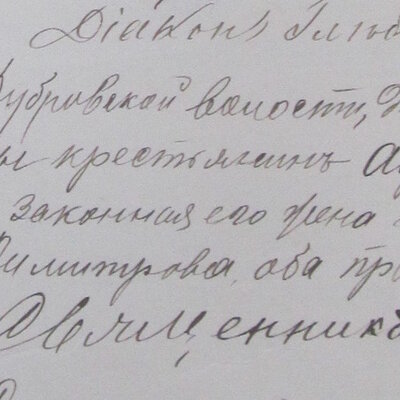 Діаконъ
Дубровской волости,
крестьянинъ
законная его жена
Димитрова, оба пр
Священникъ